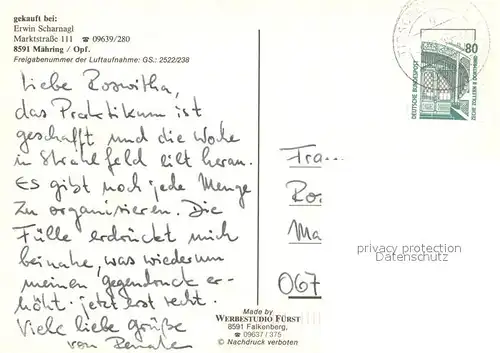 gekauft bei:
Erwin Scharnagl
Marktstraße 111 ☎ 09639/280
8591 Mähring / Opf.
Freigabenummer der Luftaufnahme: GS.: 2522/238
Liebe Roswitha,
das Praktikum ist
geschafft und die Woche
in Strahlfeld eilt heran.
Es gibt noch jede Menge
zu organisieren. Die
Fülle erdrückt mich
beinahe, was wiederum
meinen Gegendruck er-
höht. jetzt erst recht.
Viele liebe Grüße
von Renate
Made by
WERBESTUDIO FÜRST
8591 Falkenberg,
☎ 09637 / 375
© Nachdruck verboten
80
DEUTSCHE BUNDESPOST
ZECHE ZOLLERN II DORTMUND
Fra
Ro
Ma
067
privacy protection
Datenschutz